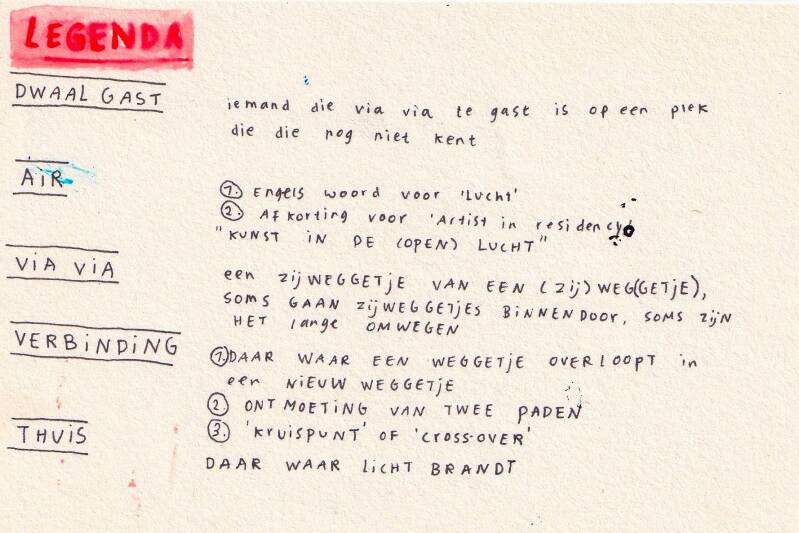 LEGENDA
DWAALGAST
iemand die via via te gast is op een plek
die die nog niet kent
AiR
1. Engels woord voor 'Lucht'
2. Afkorting voor 'Artist in residency'
"KUNST IN DE (OPEN) LUCHT"
ViA ViA
een zijWEGGETjE VAN EEN (zij)WEG(GETjE),
SOMS GAAN zijWEGGETjES BiNNENDOOR, SOMS ZijN
HET lange OMWEGEN
VERBiNDiNG
1. DAAR WAAR EEN WEGGETjE OVERLOOPT in
een NiEUW WEGGETjE
2. ONTMOETiNG VAN TWEE PADEN
3. 'KRuiSPUNT' OF 'CROSS-OVER'
THUiS
DAAR WAAR LiCHT BRANDT